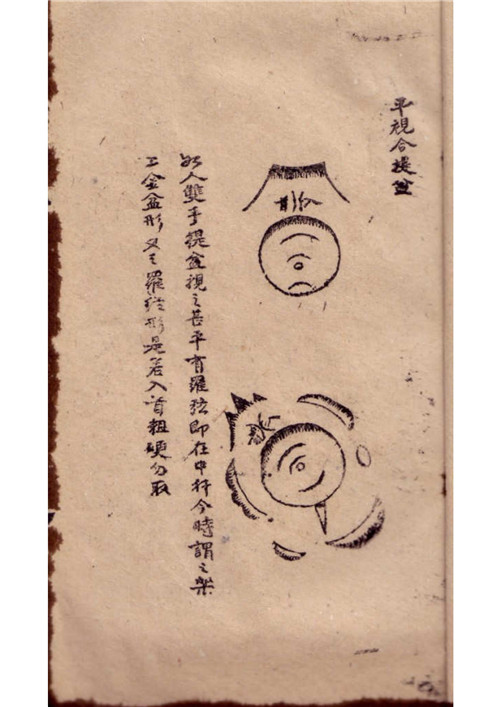 平視合提盆
如人雙手提盆視之甚平有羅紋即在中杆今時謂之架
工金盆形又之羅紋形是若入首粗硬勿取